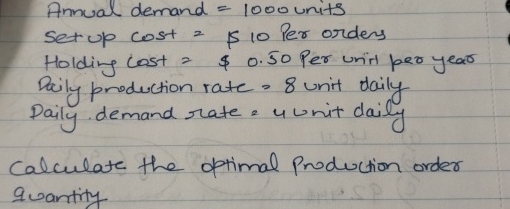 Annual demand = 1000 units
Set up cost = $ 10 Per orders
Holding Cost = $ 0.50 Per unit per year
Daily production rate = 8 unit daily
Daily demand rate = 4 unit daily
Calculate the optimal Production order
quantity